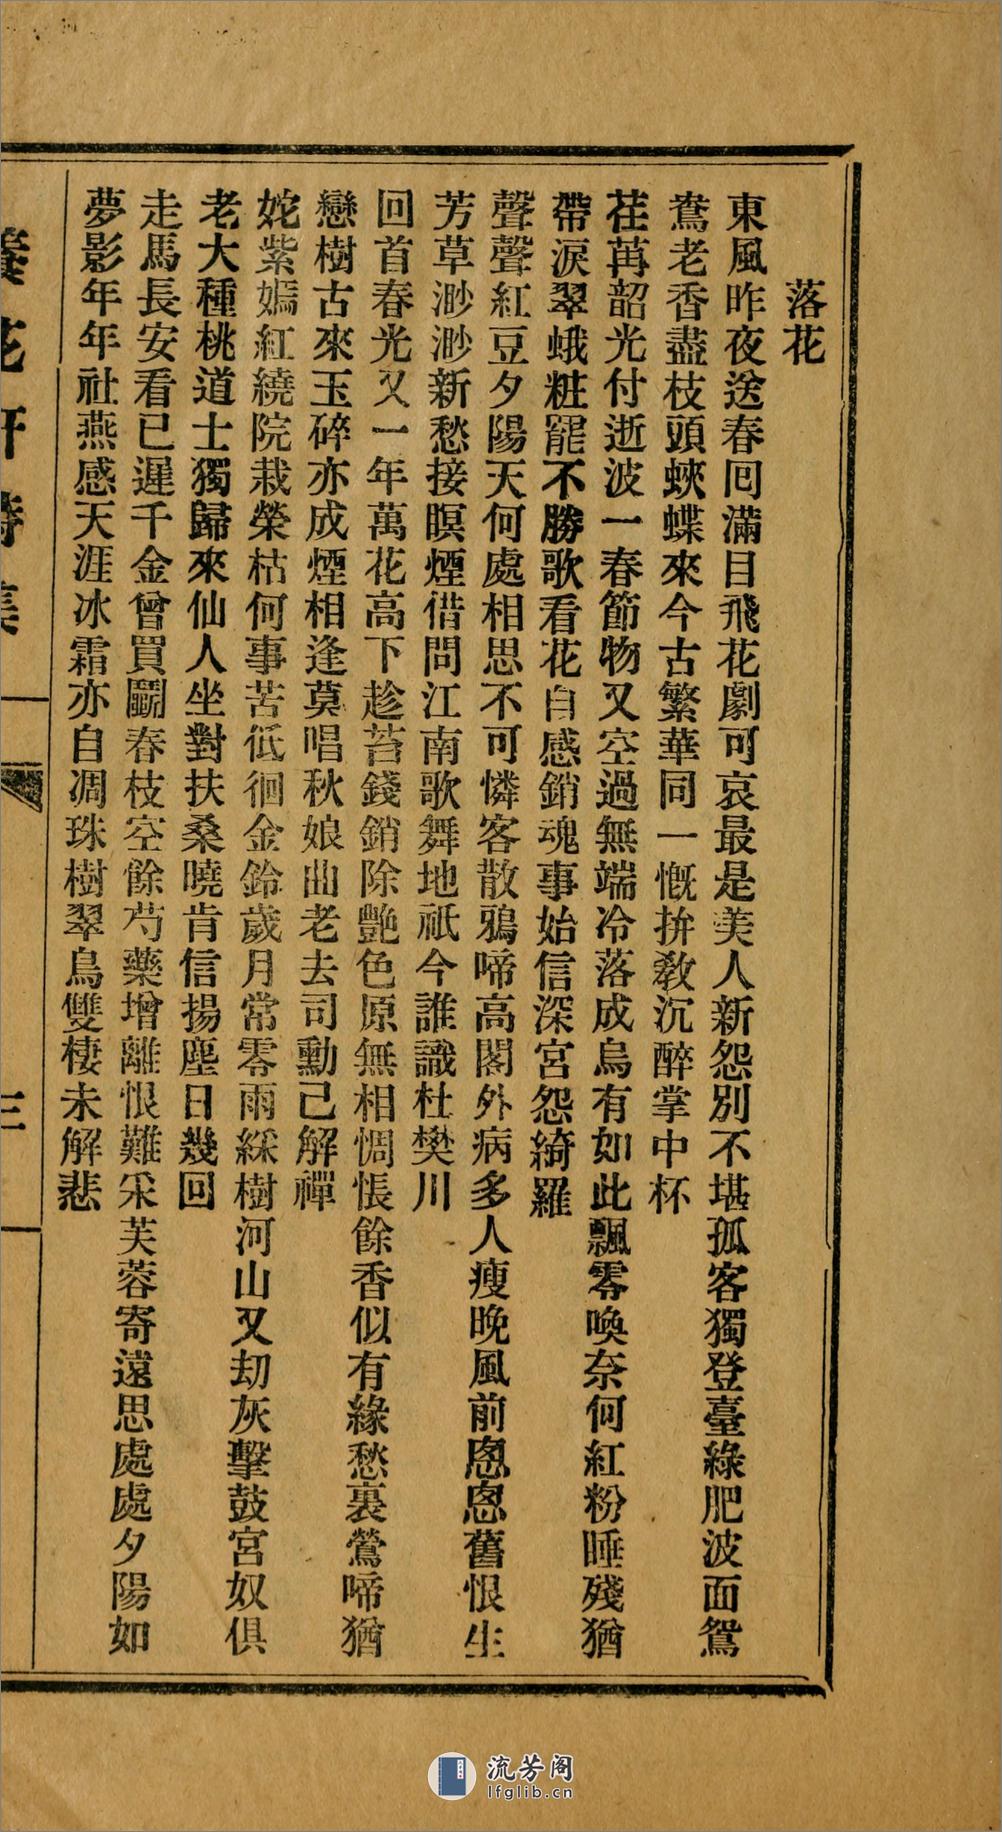 落花
東風昨夜送春回滿目飛花劇可哀最是美人新怨別不堪孤客獨登臺綠肥波面鴛
鴦老香盡枝頭蛺蝶來今古繁華同一慨拚教沉醉掌中杯
荏苒韶光付逝波一春節物又空過無端冷落成烏有如此飄零喚奈何紅粉睡殘猶
帶淚翠蛾粧罷不勝歌看花自感銷魂事始信深宮怨綺羅
聲聲紅豆夕陽天何處相思不可憐客散鴉啼高閣外病多人瘦晚風前悤悤舊恨生
芳草渺渺新愁接暝煙借問江南歌舞地祇今誰識杜樊川
回首春光又一年萬花高下趁苔錢銷除艷色原無相惆悵餘香似有緣愁裏鶯啼猶
戀樹古來玉碎亦成煙相逢莫唱秋娘曲老去司勳己解禪
姹紫嫣紅繞院栽榮枯何事苦低徊金鈴歲月常零雨綵樹河山又劫灰擊鼓宮奴俱
老大種桃道士獨歸來仙人坐對扶桑曉肯信揚塵日幾回
走馬長安看已遲千金曾買鬭春枝空餘芍藥增離恨難采芙蓉寄遠思處處夕陽如
夢影年年社燕感天涯冰霜亦自凋珠樹翠鳥雙棲未解悲
三
流芳阁
lfglib.cn